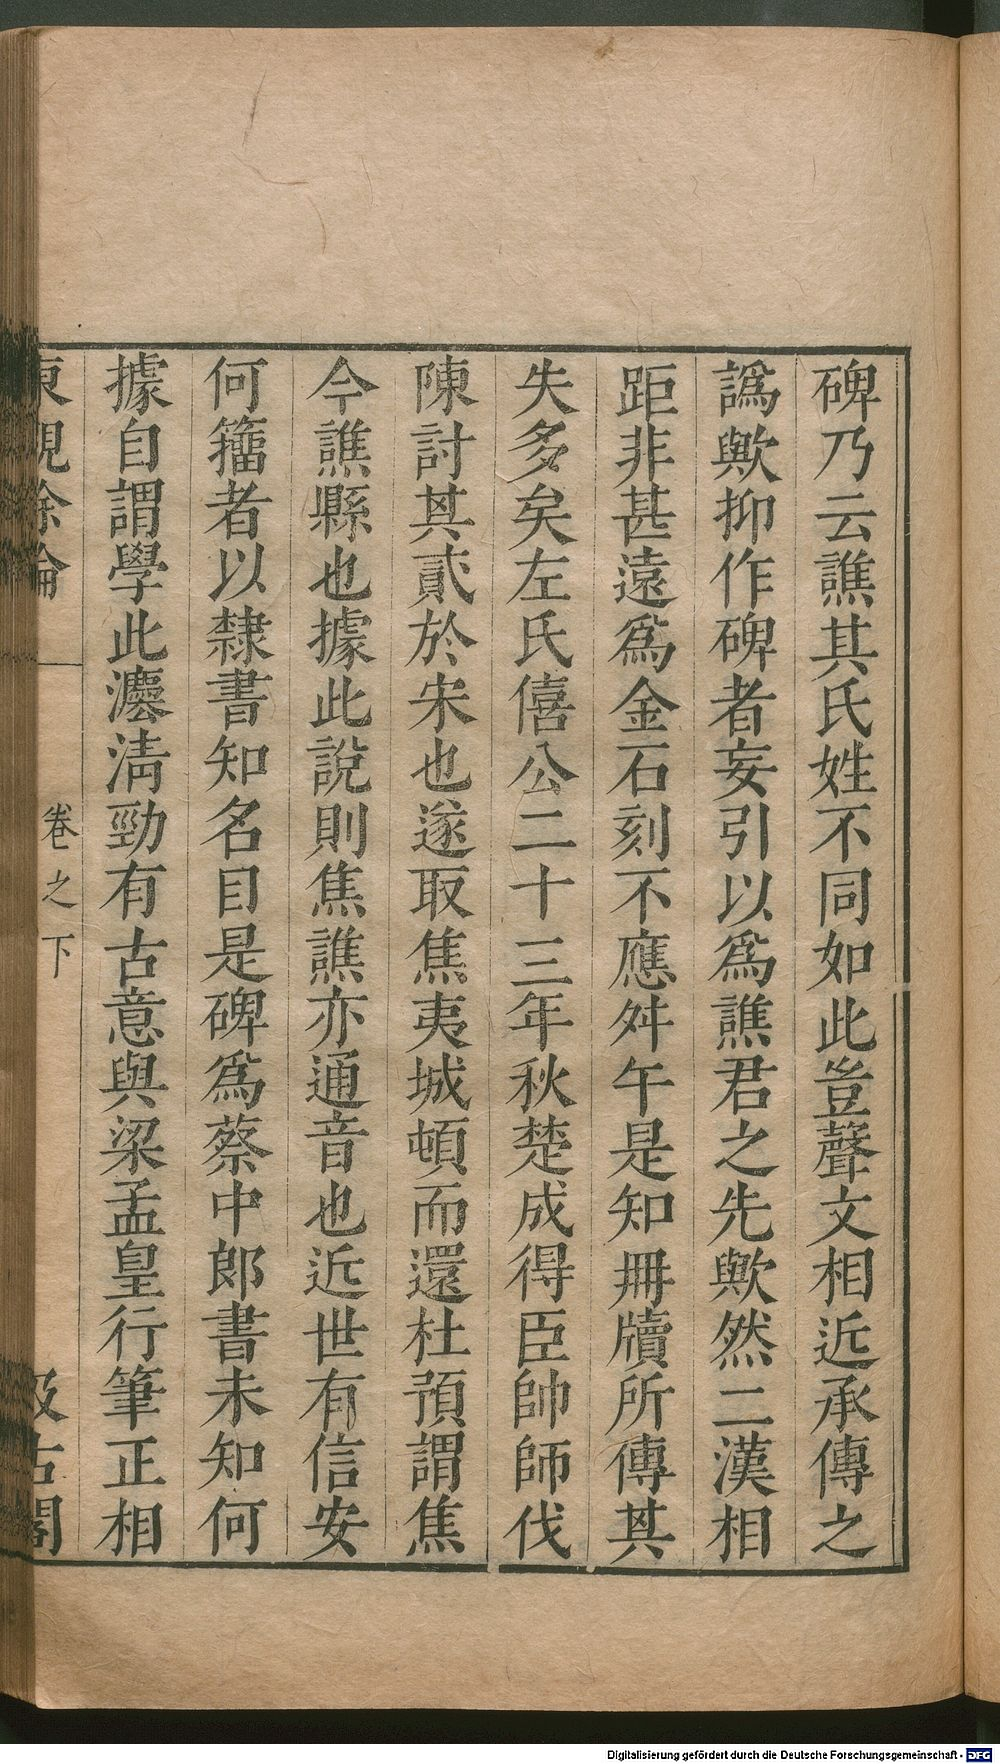 碑乃云譙其氏姓不同如此豈聲文相近承傳之
譌歟抑作碑者妄引以爲譙君之先歟然二漢相
距非甚遠爲金石刻不應舛午是知冊牘所傳其
失多矣左氏僖公二十三年秋楚成得臣帥師伐
陳討其貳於宋也遂取焦夷城頓而還杜預謂焦
今譙縣也據此說則焦譙亦通音也近世有信安
何籕者以隸書知名目是碑爲蔡中郎書未知何
據自謂學此灋淸勁有古意與梁孟皇行筆正相
東觀餘論 卷之下 汲古閣
Digitalisierung gefördert durch die Deutsche Forschungsgemeinschaft - DFG